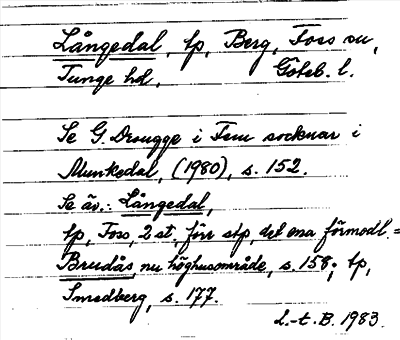 Långedal, tp, Berg, Foss sn,
Tunge hd, Göteb. l.
Se G. Drougge i Fem socknar i
Munkedal, (1980), s. 152.
Se äv.: Långedal,
tp, Foss, 2 st., förr stp, del ena förmodl. =
Brudås, nu höghusområde, s. 158; tp,
Smedberg, s. 177.
L.-t. B. 1983.